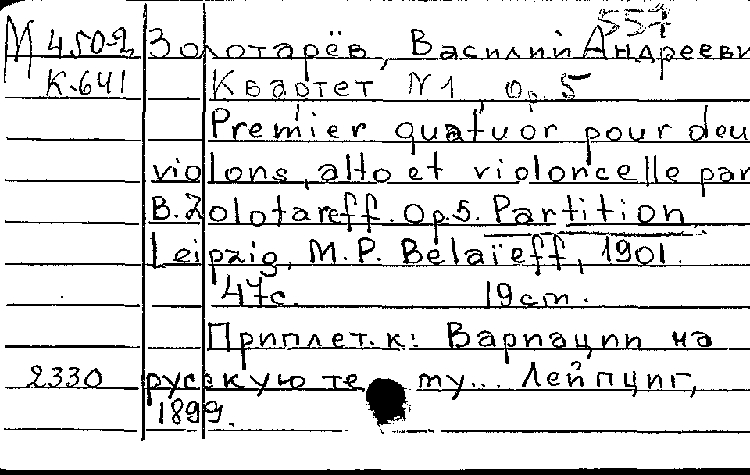 557
М 450-2 Золотарёв, Василий Андрееви
К-641 Квартет N1, Op. 5
Premier quatuor pour deu
violons, alto et violoncelle par
B. Zolotareff. Op.5. Partition
Leipzig, M.P. Bélaïeff, 1901.
47с. 19cm.
Приплет. к: Вариации на
2330 русскую тему... Лейпциг,
1899.